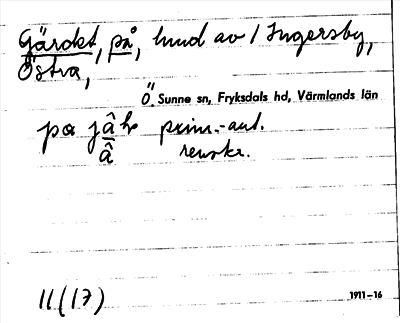 Gärdet, på, hmd av 1 Ingersby,
Östra,
Ö. Sunne sn, Fryksdals hd, Värmlands län
pa jâḥ prim.-ant.
â renskr.
11(17)
1911-16